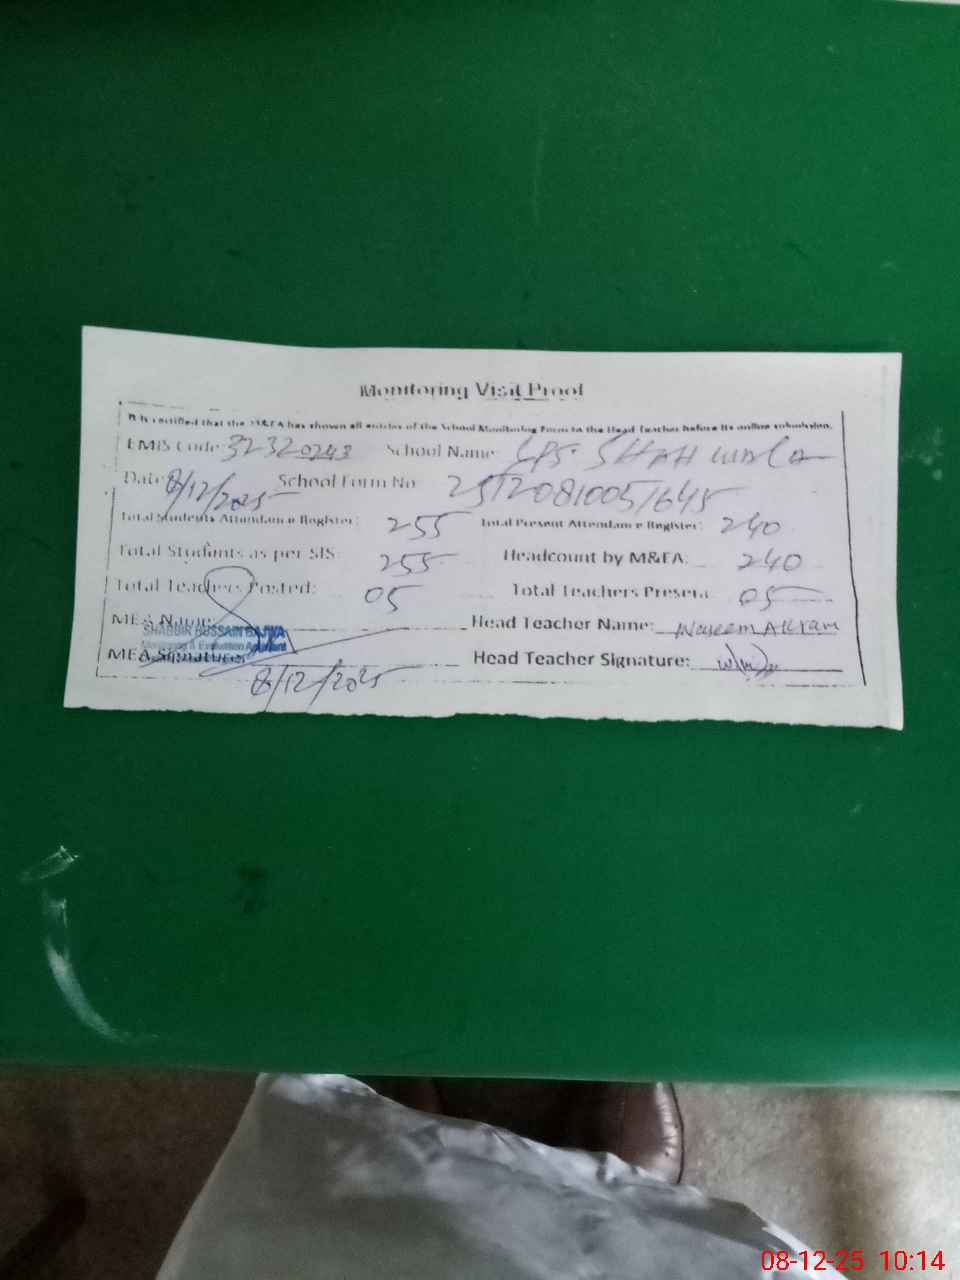 Monitoring Visit Proof
It is certified that the M&EA has shown all entries of the School Monitoring Form to the Head Teacher before its online submission.
EMIS Code: 32320243 School Name: GPS. SHAH WALA
Date: 8/12/2025 School Form No: 2512081005/645
Total Students Attendance Register: 255 Total Present Attendance Register: 240
Total Students as per SIS: 255 Headcount by M&EA: 240
Total Teachers Posted: 05 Total Teachers Present: 05
MEA Name: SHABBIR HUSSAIN BAJWA Head Teacher Name: Waseem Akram
Monitoring & Evaluation Assistant
MEA Signature: Head Teacher Signature:
8/12/2025
08-12-25 10:14